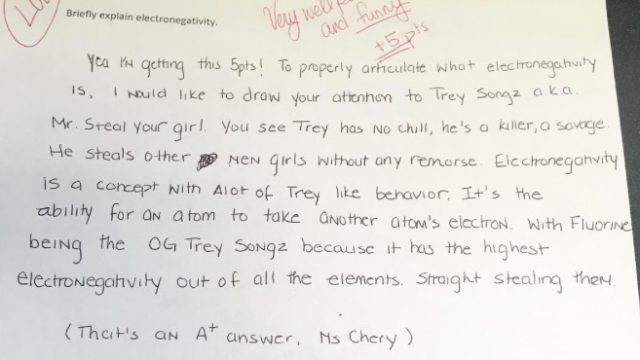 Briefly explain electronegativity.
Very well
and funny
+5 pts
Yea I'm getting this 5pts! To properly articulate what electronegativity
is, I would like to draw your attention to Trey Songz a.k.a.
Mr. Steal your girl. You see Trey has no chill, he's a killer, a savage.
He steals other men girls without any remorse. Electronegativity
is a concept with alot of Trey like behavior. It's the
ability for an atom to take another atom's electron. With Fluorine
being the OG Trey Songz because it has the highest
electronegativity out of all the elements. Straight stealing them.
(That's an A+ answer, Ms Chery)